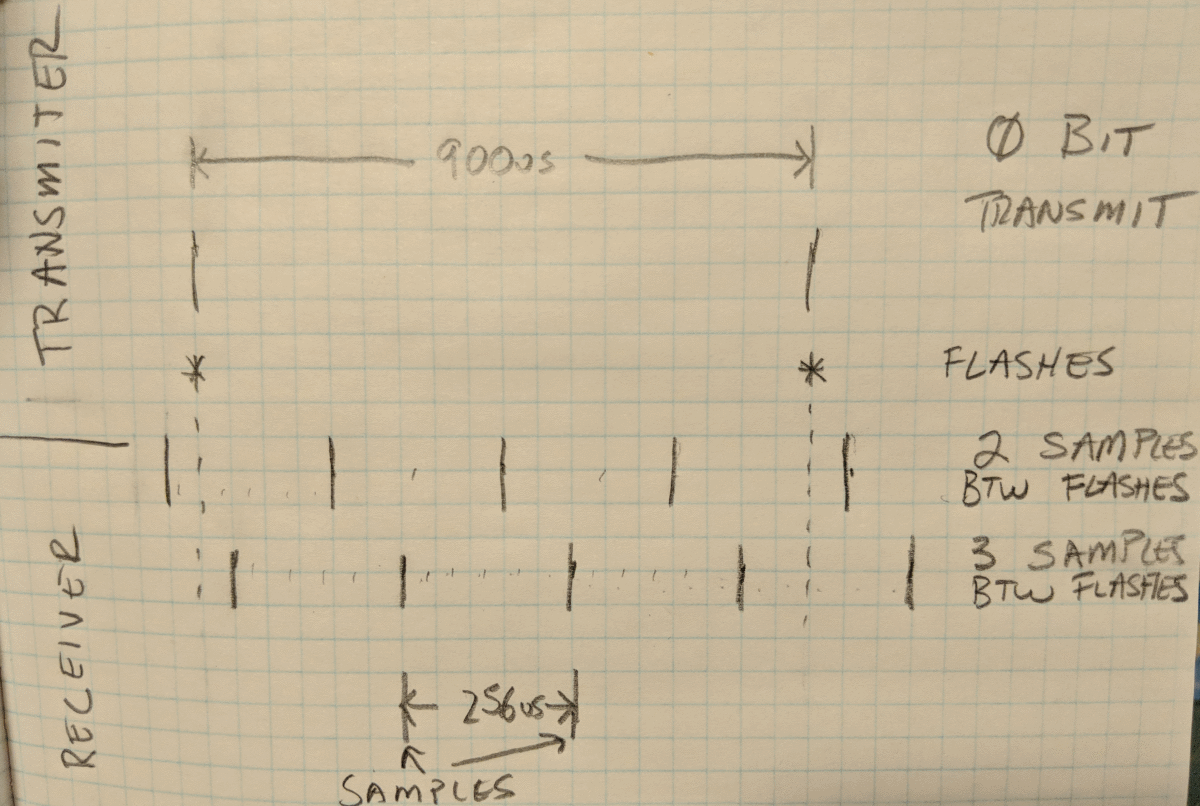 TRANSMITER
900us
0 BIT
TRANSMIT
FLASHES
2 SAMPLES
BTW FLASHES
RECEIVER
3 SAMPLES
BTW FLASHES
256us
SAMPLES